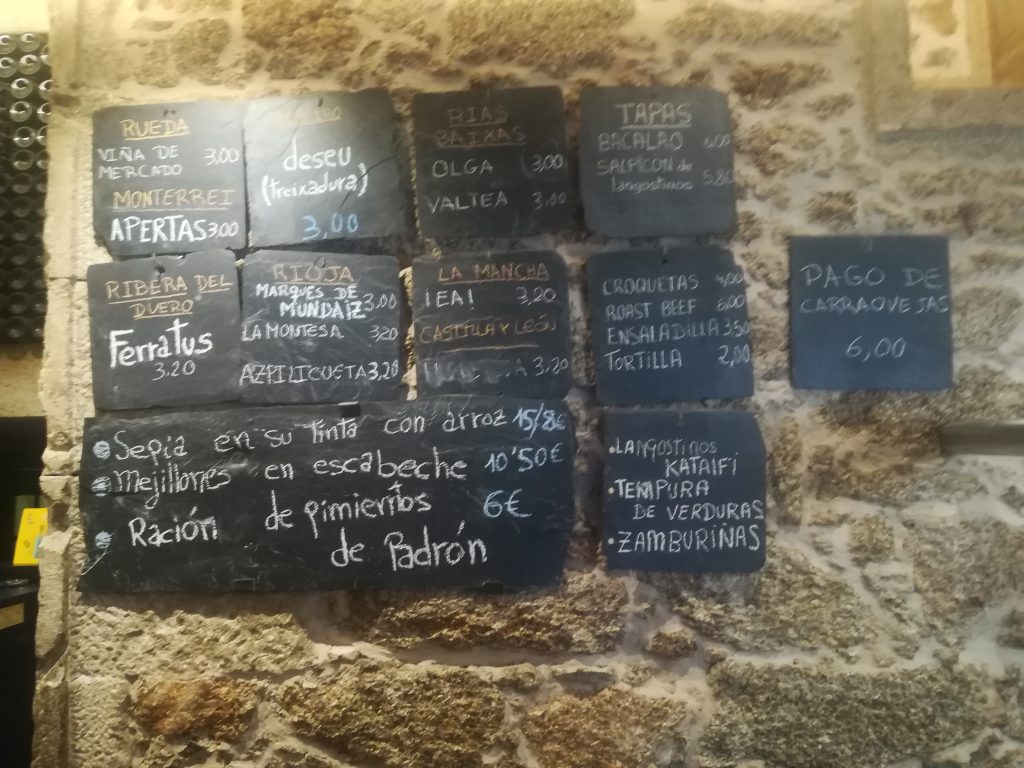 RUEDA
VIÑA DE 3,00
MERCADO
MONTERREI
APERTAS 3,00
deseu
(treixadura)
3,00
RIAS
BAIXAS
OLGA 3,00
VALTEA 3,00
TAPAS
BACALAO 6,00
SALPICON de
langostinos 5,80
RIBERA DEL
DUERO
Ferratus
3,20
RIOJA
MARQUES DE
MUNDAIZ 3,00
LA MONTESA 3,20
AZPILICUETA 3,20
LA MANCHA
¡EA! 3,20
CASTILLA Y LEÓN
3,20
CROQUETAS 4,00
ROAST BEEF 6,00
ENSALADILLA 3,50
TORTILLA 2,00
PAGO DE
CARRAOVEJAS
6,00
• Sepia en su Tinta con arroz 15/8€
• Mejillones en escabeche 10'50€
• Ración de pimientos 6€
de Padrón
• LANGOSTINOS
KATAIFÍ
• TEMPURA
DE VERDURAS
• ZAMBURIÑAS